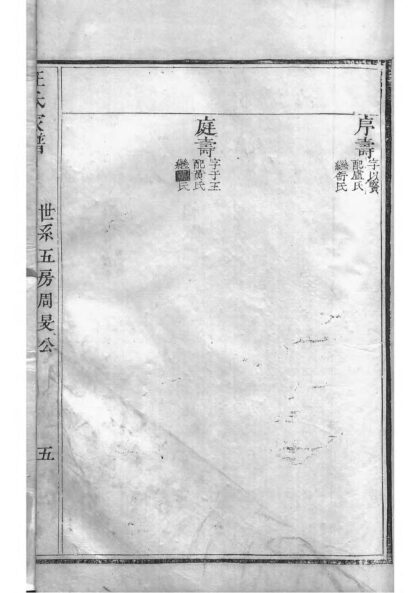 壽
字以賢
配盧氏
繼氏
庭壽
字于玉
配黃氏
繼氏
氏家譜
世系五房周旻公
五